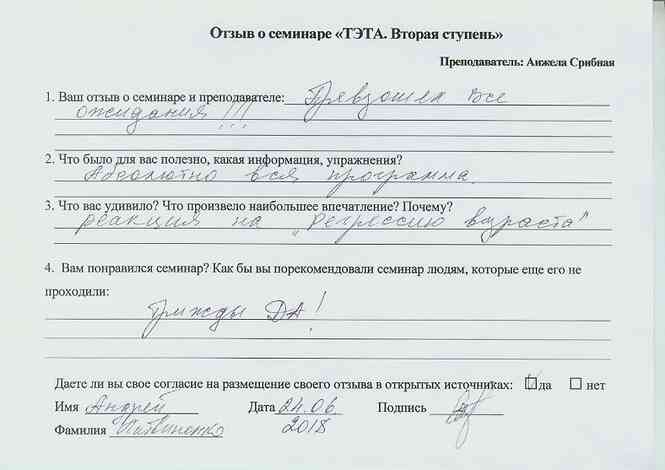 Отзыв о семинаре «ТЭТА. Вторая ступень»
Преподаватель: Анжела Срибная
1. Ваш отзыв о семинаре и преподавателе: Превзошел все
ожидания !!!
2. Что было для вас полезно, какая информация, упражнения?
Абсолютно вся программа.
3. Что вас удивило? Что произвело наибольшее впечатление? Почему?
реакция на „Регрессию возраста"
4. Вам понравился семинар? Как бы вы порекомендовали семинар людям, которые еще его не
проходили:
Трижды ДА!
Даете ли вы свое согласие на размещение своего отзыва в открытых источниках: да нет
Имя Андрей Дата 24.06 Подпись
Фамилия Литвиненко 2018